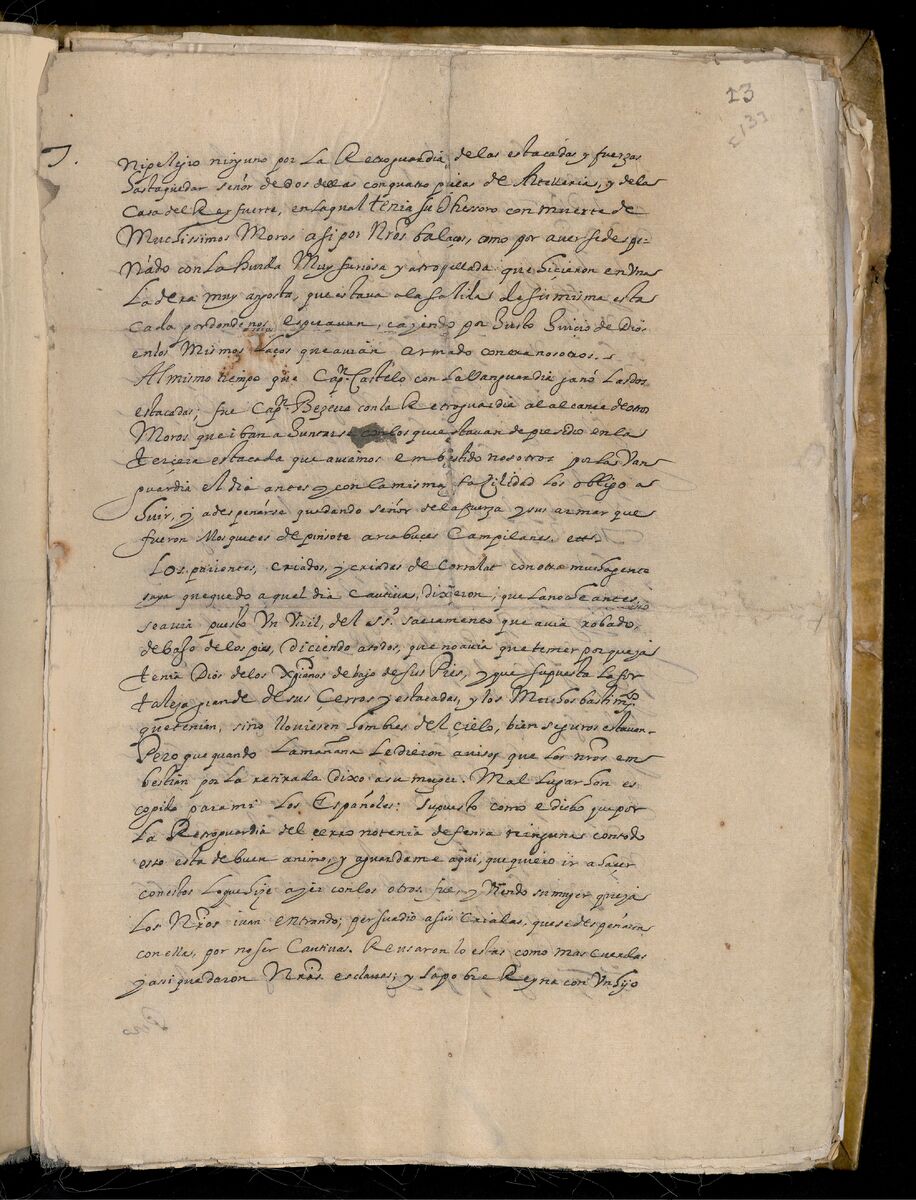 13
7.
Ni peligro ninguno por La Retroguardia, de las estacadas y fuerzas
hasta quedar señor de dos dellas con quatro pieças de Artilleria, y dela
Casa del Rey fuerte, en la qual tenia su thessoro con muerte de
Muchissimos Moros asi por Nros. balaços, como por averse despe-
ñado con La huida Muy furiosa y atropellada que hicieron en Una
Ladera muy angosta, que estava a la salida de su misma esta
cada por donde nos esperavan, cayendo por Justo Juicio de Dios
en los Mismos Laços que avian armado contra nosotros.
Al mismo tiempo que Capn. Castelo con La Vanguardia ganó Las dos
estacadas; fue Capn. Bezerra con la Retroguardia al alcance de otros
Moros que iban a Juntarse con los que estavan de presidio en la
tercera estacada que aviamos embestido nosotros por La Van
guardia el dia antes y con la misma facilidad Los obligo a
huir, y a despeñarse quedando señor de la fuerza y sus armas que
fueron Mosquetes de pinsote arcabuces Campilanes. ett.
Los parientes, criados, y criadas de Corralat con otra mucha gente
suya que quedo aquel dia Cautiva, dixeron, que La noche antes
se avia puesto Un Viril, del ss. sacramento que avia robado,
debaxo de los pies, diciendo a todos, que no avia que temer porque ya
tenia Dios de los Xpianos debajo de sus Pies, y que supuesta La for
taleza grande de sus Cerros y estacadas, y los Muchos bastimtos
que tenian, sino lloviesen hombres del çielo, bien seguros estavan.
Pero que quando La mañana Le dieron aviso, que Los nros em
bestian por La retirada dixo a su muger. Mal Lugar han es
cogido para mi Los Españoles: supuesto como e dicho que por
La Retroguardia del cerro no tenia defensa ninguna: con todo
esso esta de buen animo, y aguardame aqui, que quiero ir a haçer
con estos Lo que hiçe ayer con los otros. fue, y Viendo su muger que ya
Los Nros ivan entrando; persuadio a sus Criadas, que se despeñasen
con ella, por no ser Cautivas. Reusaron lo estas como mas cuerdas
y asi quedaron Nras. esclavas; y La pobre Reyna con Un hijo